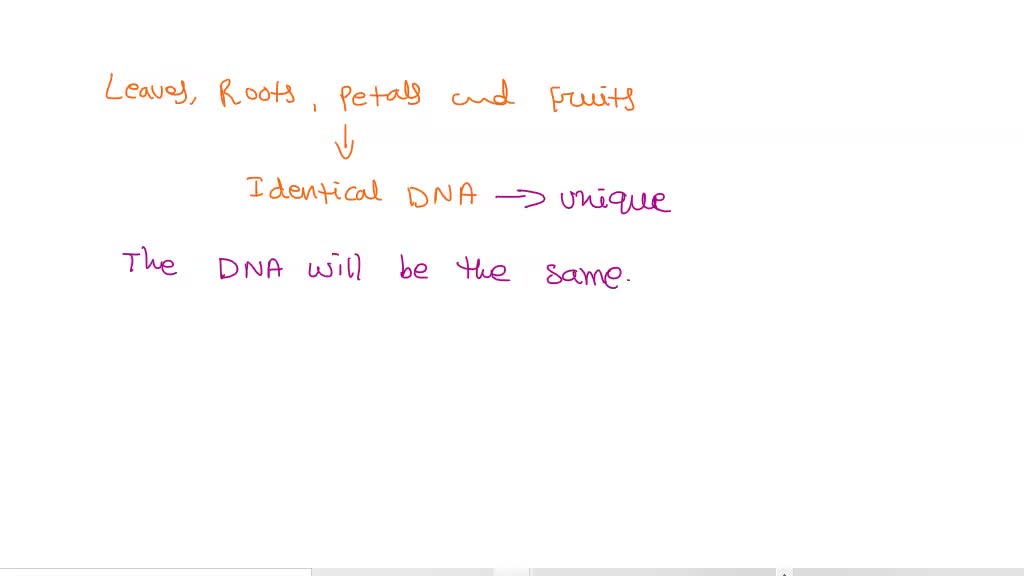 Leaves, Roots, petals and fruits
Identical DNA → unique
The DNA will be the same.